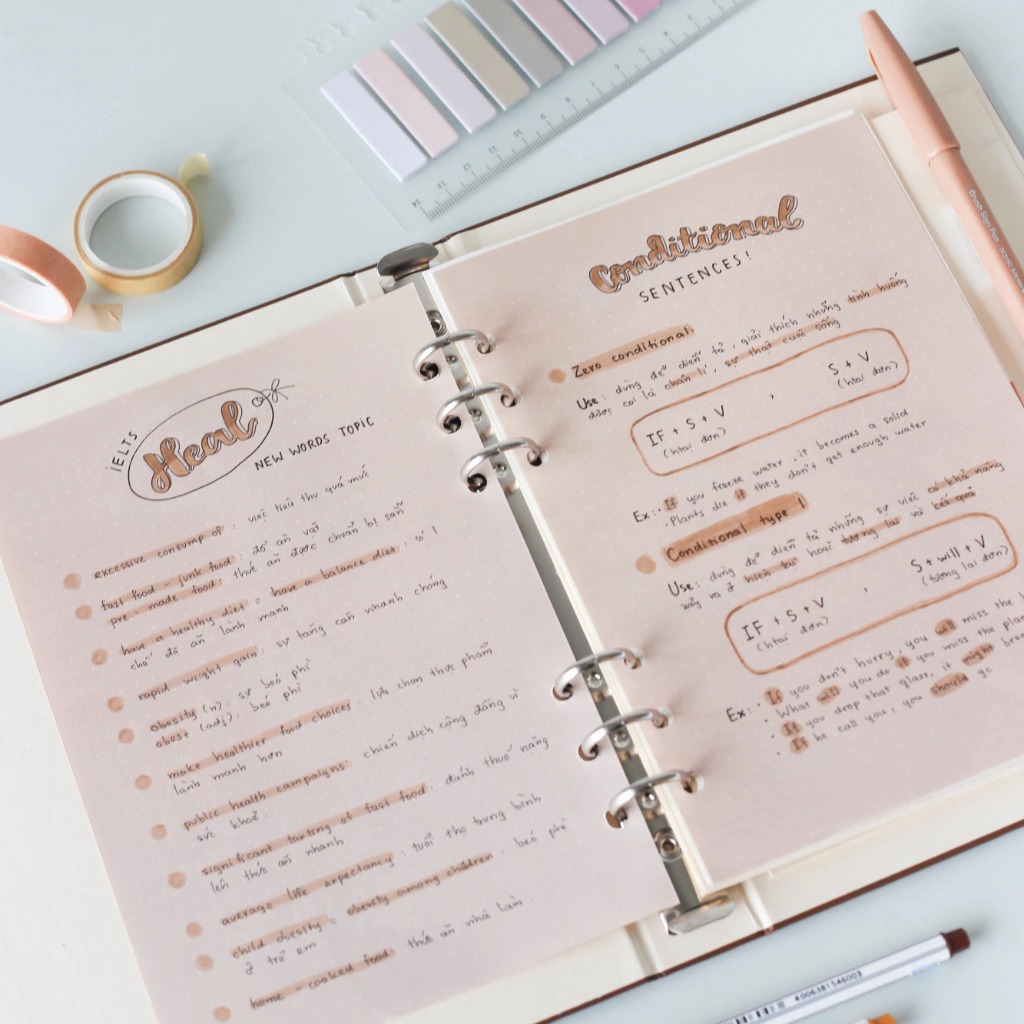 IELTS
Heal
NEW WORDS TOPIC
excessive consump of : việc tiêu thụ quá mức
fast food - junk food : đồ ăn vặt
pre - made food : thức ăn được chuẩn bị sẵn
have a healthy diet = have a balance diet : có 1
chế độ ăn lành mạnh
rapid weight gain : sự tăng cân nhanh chóng
obesity (n) : sự béo phì
obest (adj) : béo phì
make healthier food choices : lựa chọn thực phẩm
lành mạnh hơn
public health campaigns : chiến dịch cộng đồng vì
sức khoẻ.
significant taxting of fast food : đánh thuế nặng
lên thức ăn nhanh
average life expectancy : tuổi thọ trung bình
child obesity = obesity among children : béo phì
ở trẻ em
home - cooked food : thức ăn nhà làm.
Conditional
SENTENCES!
Zero conditional
Use : dùng để diễn tả, giải thích những tình huống
được coi là chân lí, sự thật cuộc sống
IF + S + V , S + V
(htại đơn) (htại đơn)
Ex : . If you freeze water, it becomes a solid
. Plants die if they don't get enough water
Conditional type 1
Use : dùng để diễn tả những sự việc có khả năng
xảy ra ở hiện tại hoặc tương lai và kết quả
IF + S + V , S + will + V
(htại đơn) (tương lai đơn)
Ex : . If you don't hurry, you will miss the
. What will you do if you miss the
. If you drop that glass, it might
. If he call you, you should go
Brush Sign Pen
4006381546003